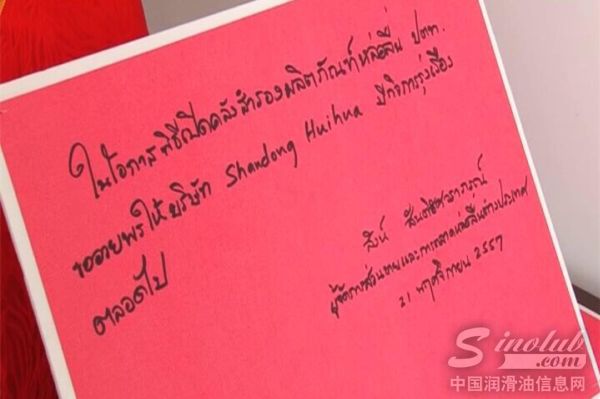 ในโอกาส พิธีเปิดคลังสำรองผลิตภัณฑ์หล่อลื่น ปตท.
ขออวยพรให้บริษัท Shandong Huihua มีกิจการรุ่งเรือง
ตลอดไป
ผู้จัดการส่วนขายและการตลาดหล่อลื่นต่างประเทศ
21 พฤศจิกายน 2557
Sinolub
.com
中国润滑油信息网